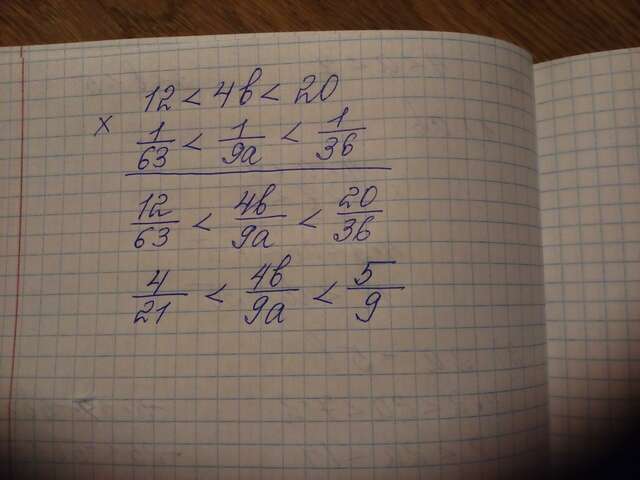 12 < 4в < 20
x
1/63 < 1/9a < 1/36
12/63 < 4в/9a < 20/36
4/21 < 4в/9a < 5/9